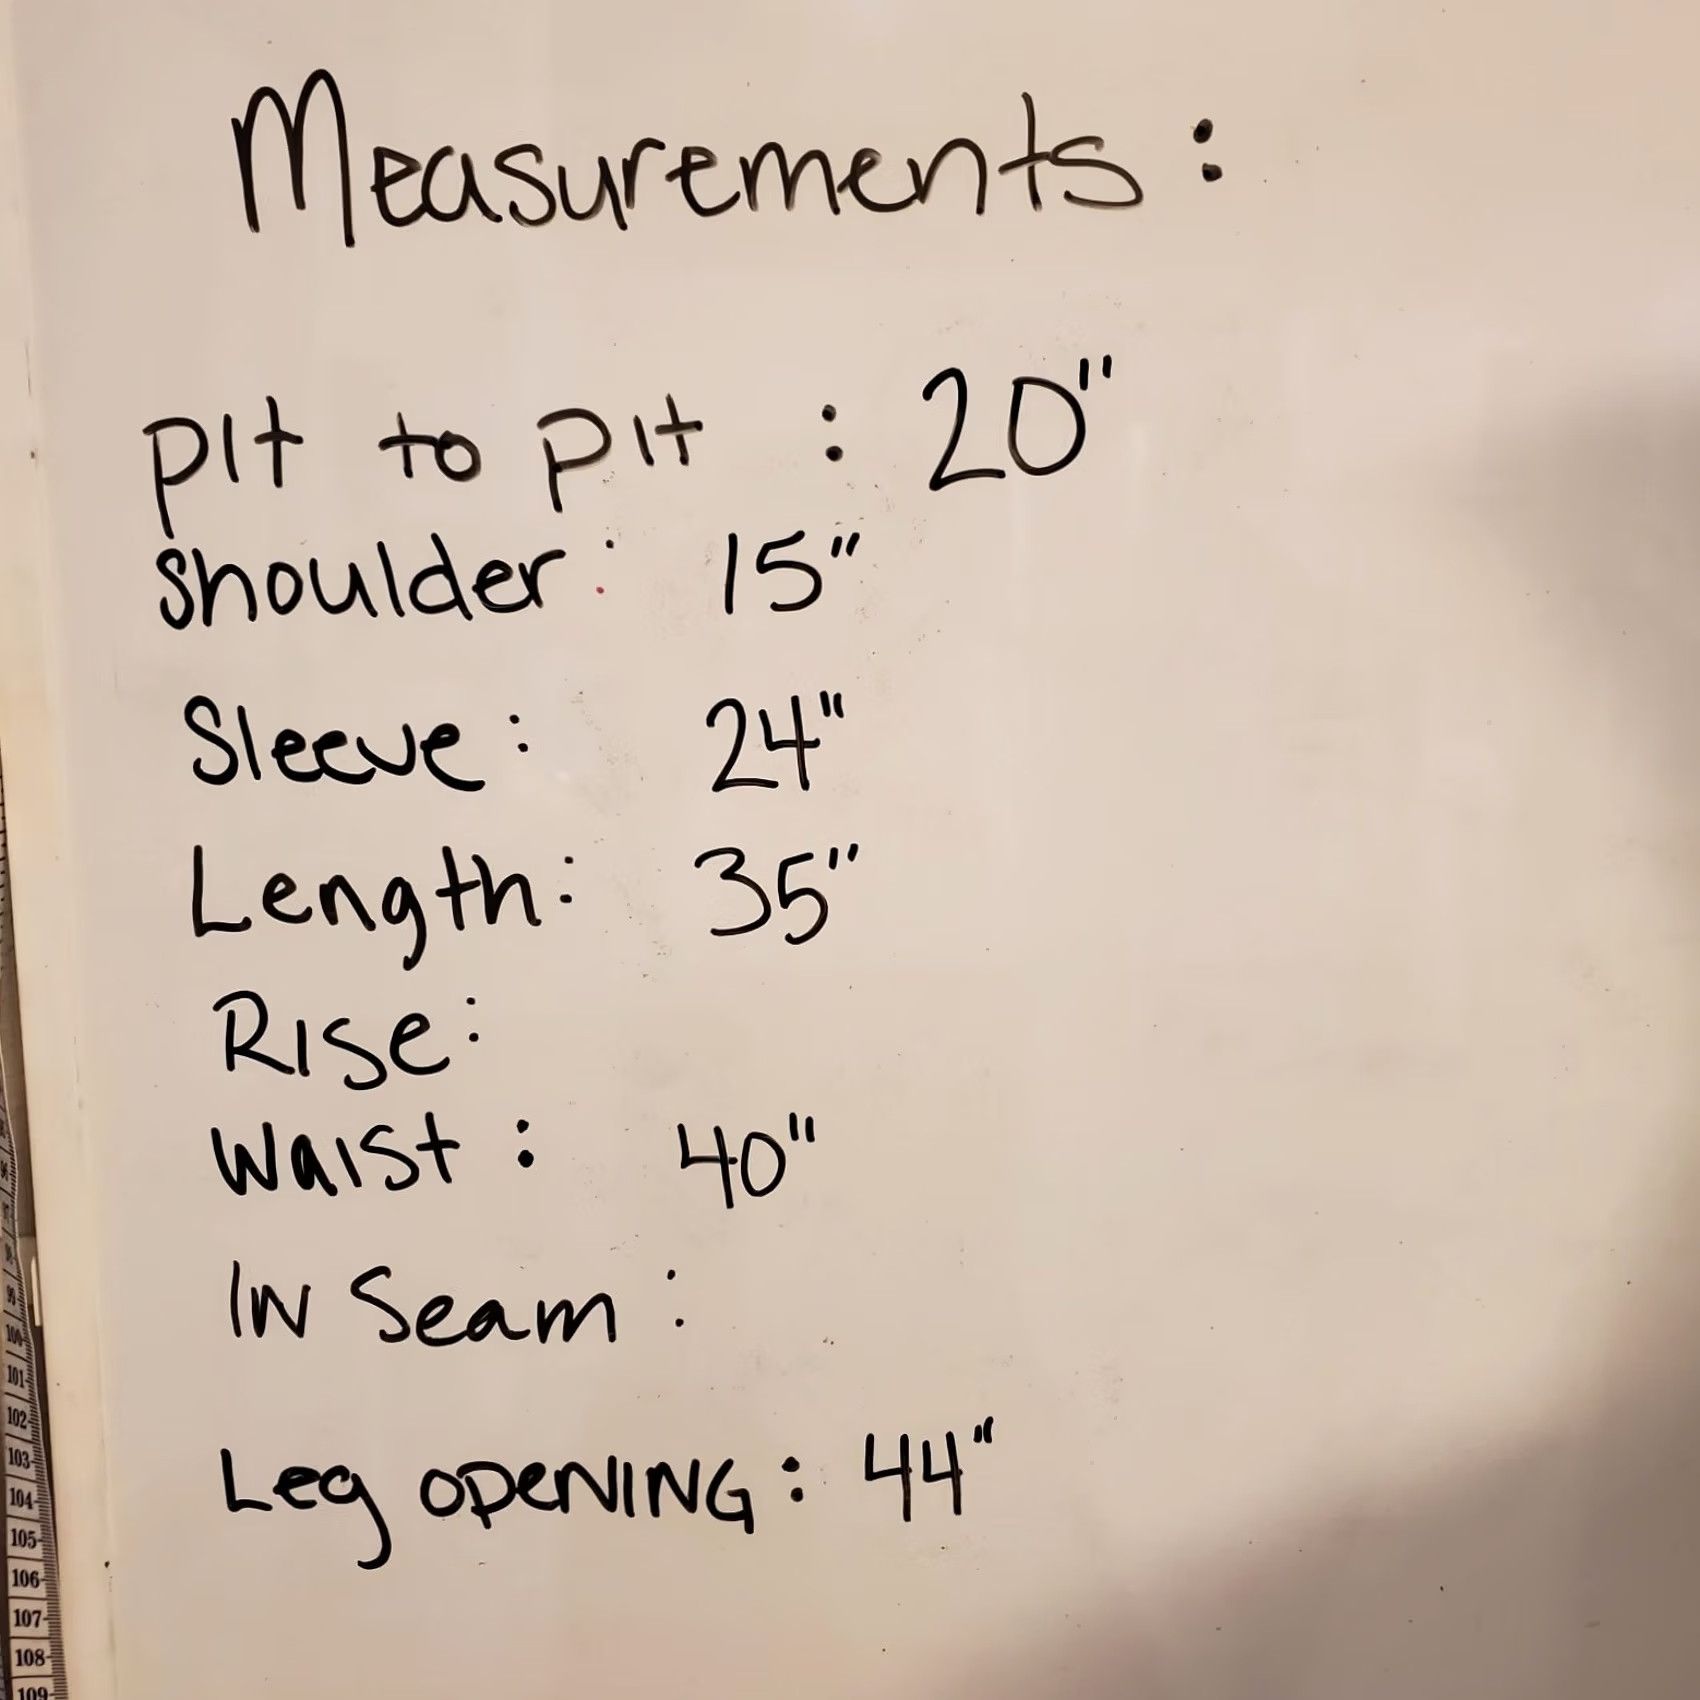 Measurements:
pit to pit : 20"
shoulder: 15"
Sleeve: 24"
Length: 35"
Rise:
Waist: 40"
IN Seam:
Leg OPeNING: 44"
99
100
101
102
103
104
105
106
107
108
109